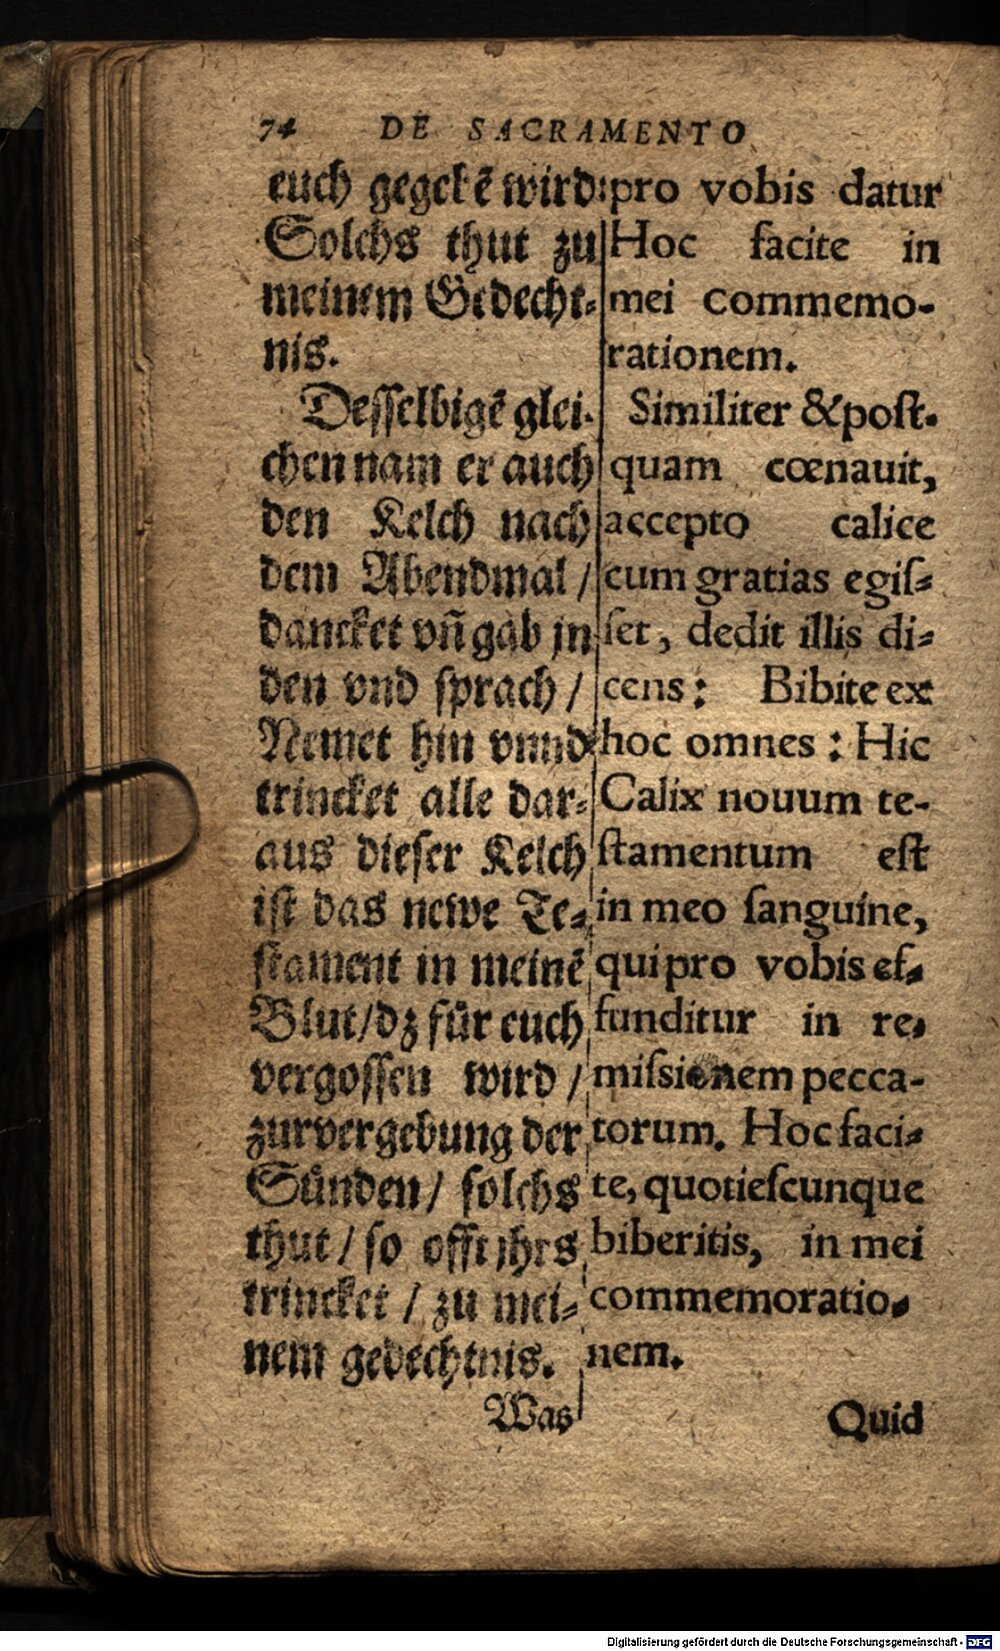 74 DE SACRAMENTO
euch gegebē wird:
Solchs thut zu
meinem Gedecht⸗
nis.
Desselbigē glei⸗
chen nam er auch
den Kelch nach
dem Abendmal /
dancket vñ gab jn
den vnd sprach /
Nemet hin vnnd
trincket alle dar⸗
aus dieser Kelch
ist das newe Te⸗
stament in meinē
Blut/dz für euch
vergossen wird /
zur vergebung der
Sünden/ solchs
thut / so offt jhrs
trincket / zu mei⸗
nem gedechtnis.
Was
pro vobis datur
Hoc facite in
mei commemo-
rationem.
Similiter & poſt-
quam cœnauit,
accepto calice
cum gratias egiſ-
ſet, dedit illis di-
cens: Bibite ex
hoc omnes : Hic
Calix nouum te-
ſtamentum eſt
in meo ſanguine,
qui pro vobis ef-
funditur in re-
miſsionem pecca-
torum. Hoc faci-
te, quotieſcunque
biberitis, in mei
commemoratio-
nem.
Quid
Digitalisierung gefördert durch die Deutsche Forschungsgemeinschaft - DFG